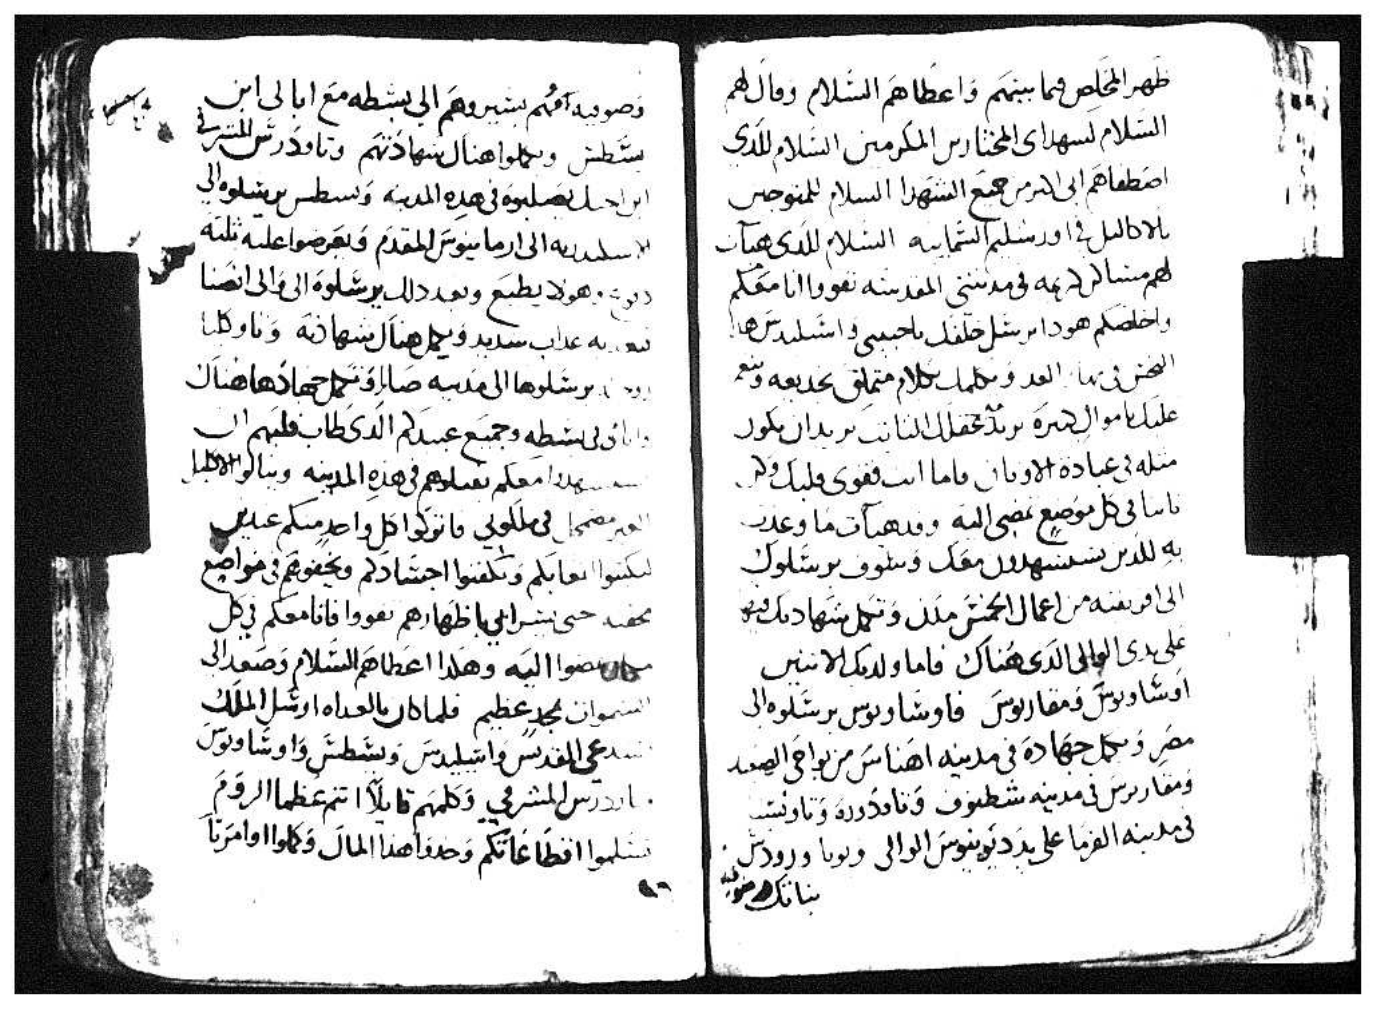 ظهر المخلص فيما بينهم واعطاهم السلام وقال لهم
السلام لشهداى المختارين المكرمين السلام للذى
اصطفاهم ابى اكثر من جميع الشهدا السلام للمتوجين
بالاكاليل في اورشليم السمايية السلام للذى هيأت
لهم مساكن كريمه في مدينتي المقدسه تقووا انا معكم
واخلصكم هودا يرسل خلفك ياحبيبى واسيليدس هذا
النجس في الغد ويكلمك بكلام متملق بخديعه وينعم
عليك باموال كثيرة يريد ان يكون
مثله في عبادة الاوثان فاما انت فقوى قلبك وكن
ثابتا في كل موضع تمضى اليه وقد هيات ما وعدت
به للذين يستشهدون معك وسوف يرسلوك
الى افريقيه من اعمال الخمس مدن وتكمل شهادتك فيها
على يدى الوالى الذى هناك فاما ولديك الاثنين
اوساويوس ومقاريوس فاوساويوس يرسلوه الى
مصر ويكمل جهاده في مدينه اهناس من نواحى الصعيد
ومقاريوس في مدينه شطنوف وتاودوره
في مدينه الفرما على يد ديونيوس الوالى
بناتك
وصوفيه امهم يسيروهم الى بسطه مع ابالى ابن
يسطس ويكملوا هناك شهادتهم وتاودرس المشرقى
يصلبوه في هذه المدينه ويسطس يرسلوه الى
الاسكندريه الى ارمانيوس المقدم ويعرضوا عليه ثلثه
وهو لا يطيع وبعد ذلك يرسلوه الى والى انصنا
عذاب شديد ويكمل هناك شهادته وتاوكليا
يرسلوها الى مدينه صا وتكمل جهادها هناك
في بسطه وجميع عبيدكم الذى طاب قلبهم ان
معكم يقتلوهم في هذه المدينه وينالوا الاكليل
الغير مضمحل في ملكوتي فاتركوا كل واحد منكم عبدين
ليكتبوا اتعابكم ويكفنوا اجسادكم ويخفوهم في مواضع
مخفيه حتى يسر ابي باظهارهم تقووا فانا معكم في كل
مكان تمضوا اليه وهكذا اعطاهم السلام وصعد الى
السموات بمجد عظيم فلما كان بالغداه ارسل الملك
استدعى القديس واسيليدس ويسطس واوساويوس
تاودرس المشرقي وكلمهم قايلا انتم عظما الروم
تسلموا اقطاعاتكم وخدوا هذا المال وكملوا اوامرنا